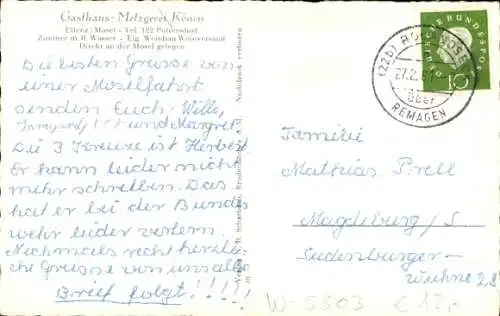 Gasthaus - Metzgerei Könen
Ellenz/Mosel - Tel. 122 Poltersdorf
Zimmer m. fl. Wasser - Eig. Weinbau Weinversand
Direkt an der Mosel gelegen
Die besten Grüsse von
einer Moselfahrt
senden Euch: Willi,
Irmgard, ††† und Margret.
Die 3 Kreuze ist Herbert.
Er kann leider nicht
mehr schreiben. Das
hat er bei der Bundes
wehr leider verlernt.
Nochmals recht herzli-
che Grüsse von uns allen
Brief folgt!!!!!
Nachdruck verboten
DEUTSCHE BUNDESPOST
10
(22b)
27.2.61
über
REMAGEN
Familie
Mathias Prell
Magdeburg/S
Sudenburger-
Wuhne 28
W-5503 € 12,-